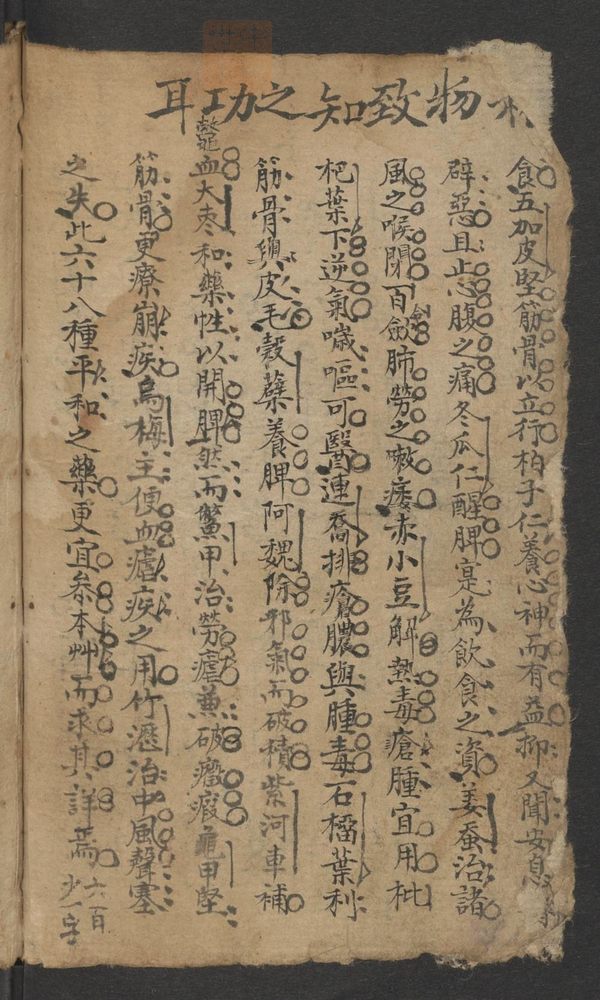 物致知之功耳
食五加皮堅筋骨以立行柏子仁養心神而有益抑又聞安息
辟惡且止心腹之痛冬瓜仁醒脾寔為飲食之資姜蚕治諸
風之喉閉百劔肺勞之嗽痿赤小豆解熱毒瘡腫宜用枇
杷葉下逆氣噦嘔可醫連喬排瘡膿與腫毒石橊葉利
筋骨與皮毛穀蘗養脾阿魏除邪氣而破積紫河車補
血大枣和藥性以開脾然而鱉甲治勞瘧兼破癥瘕龜甲堅
筋骨更療崩疾烏梅主便血瘧疾之用竹瀝治中風聲塞
之失此六十八種平和之藥更宜叅本艸而求其詳焉
六百
少一字